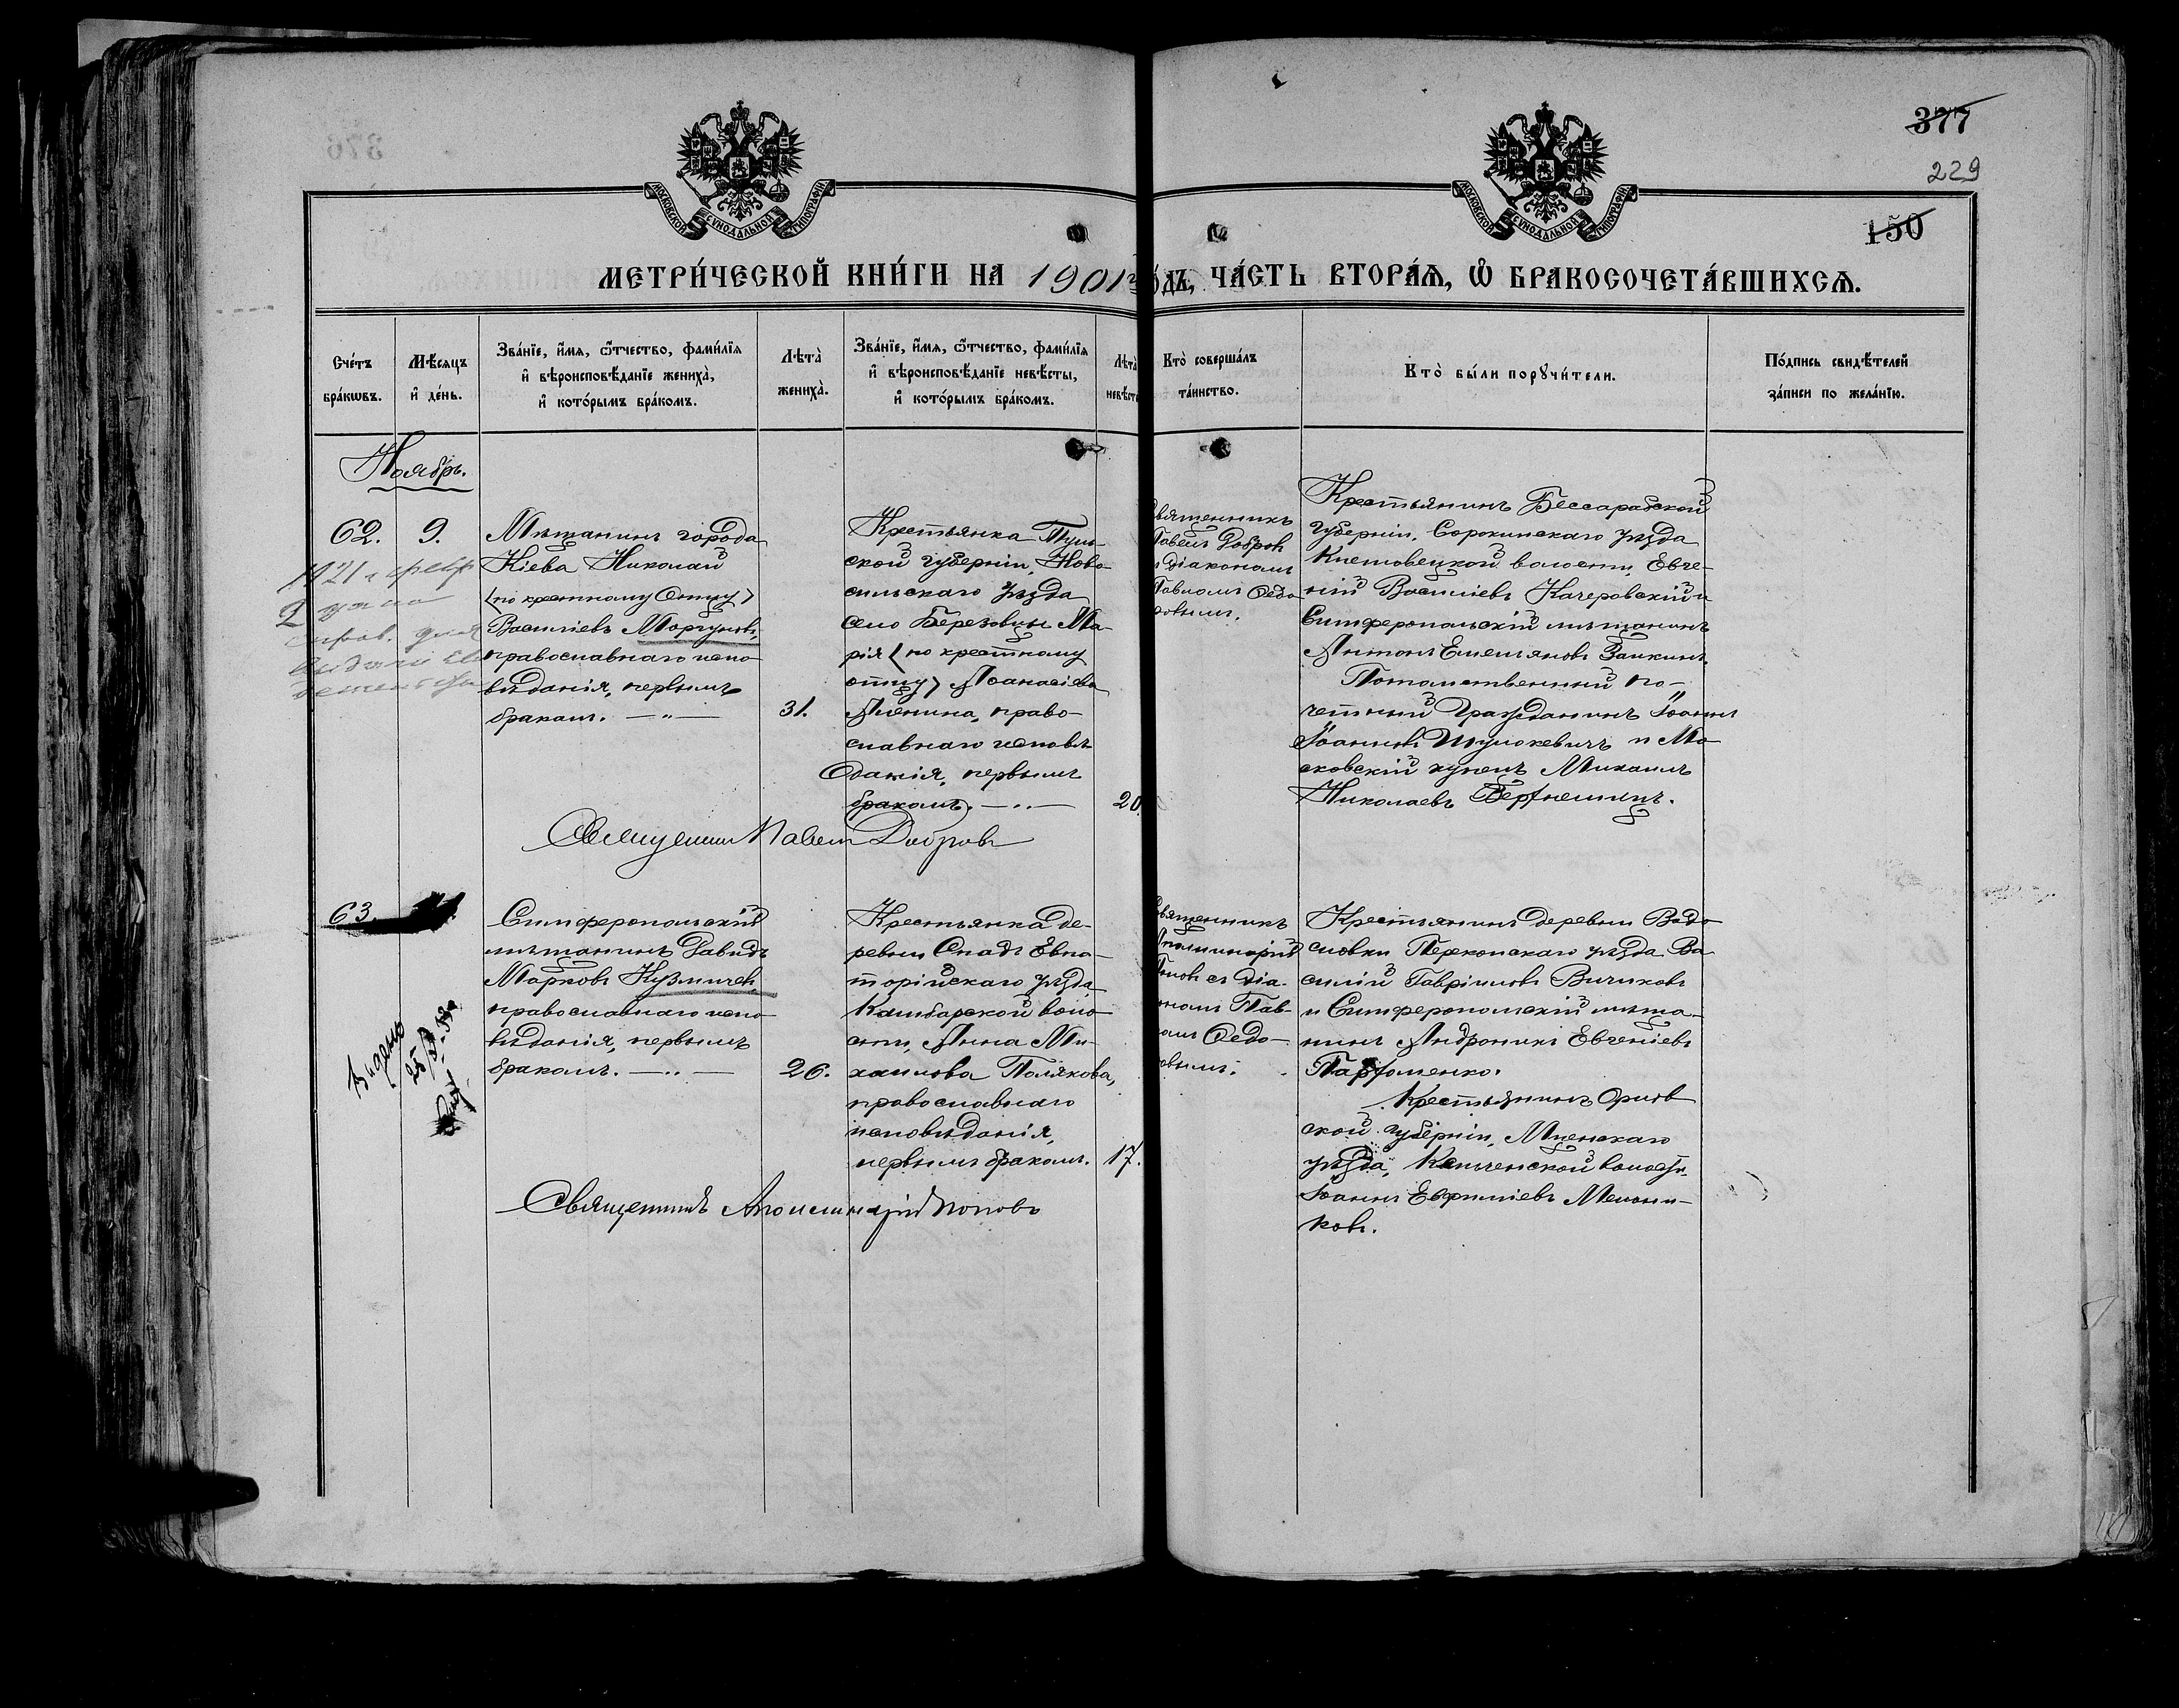 377
229
150
МОСКОВСКОЙ СУНОДАЛЬНОЙ ТИПОГРАФІИ
МОСКОВСКОЙ СУНОДАЛЬНОЙ ТИПОГРАФІИ
МЕТРИ́ЧЕСКОЙ КНИ́ГИ НА 1901 го́дъ, ЧА́СТЬ ВТОРА́Ѧ, Ѡ БРАКОСОЧЕТА́ВШИХСѦ.
Сче́тъ
бра́кѡвъ.
Мѣ́сяцъ
и҆ де́нь.
Зва́нїе, и҆́мя, ѻ҆́тчество, фами́лїя
и҆ вѣроисповѣ́данїе жениха̀,
и҆ кото́рымъ бра́комъ.
Лѣта̀
жениха̀.
Зва́нїе, и҆́мя, ѻ҆́тчество, фами́лїя
и҆ вѣроисповѣ́данїе невѣ́сты,
и҆ кото́рымъ бра́комъ.
Лѣта̀
невѣ́ст
Кто̀ соверша́лъ
та́инство.
Кто̀ бы́ли порꙋчи́тели.
По́дпись свидѣ́телей
за́писи по жела́нїю.
Ноябрь.
62.
9.
1921 г февр
Мѣщанинъ города
Кіева Николай
(по крестному Отцу)
Васильевъ Моргуновъ,
православнаго испо-
вѣданія, первымъ
бракомъ.
31.
Крестьянка Туль-
ской губерніи, Ново-
сильскаго уѣзда
село Березовцы Ма-
рія (по крестному
отцу) Аѳанасіева
Аленина, право-
славнаго исповѣ-
данія, первымъ
бракомъ.
20
священникъ
Павелъ Добров
діакономъ
Павломъ Ѳедо
ровымъ.
Крестьянинъ Бессарабской
губерніи, Сорокинскаго уѣзда
волости, Евге-
ній Васильевъ Качеровскій и
Симферопольскій мѣщанинъ
Антонъ Емельяновъ Заикинъ.
Потомственный по-
четный Гражданинъ Іоаннъ
Іоанновъ Шулькевичъ и Мо-
сковскій купецъ Михаилъ
Николаевъ
Священникъ Павелъ Добровъ
63.
Видено
Симферопольскій
мѣщанинъ Давидъ
Марковъ Кузмичев,
православнаго испо-
вѣданія, первымъ
бракомъ.
26.
Крестьянка де-
ревни Спадъ Евпа-
торійскаго уѣзда,
Камбарской воло-
сти, Анна Ми-
хаилова Полякова,
православнаго
исповѣданія,
первымъ бракомъ.
17.
священникъ
Аполлинарій
Поповъ съ діа-
кономъ Пав-
ломъ Ѳедо-
ровымъ.
Крестьянинъ деревни Вадо
словки Перекопскаго уѣзда Ва
силій Гавріиловъ Вичиковъ
и Симферопольскій мѣща-
нинъ Андроникъ Евгеніевъ
Парфоменко.
Крестьянинъ Орлов
ской губерніи, Мценскаго
уѣзда, волости
Іоаннъ Евфиміевъ Мельни-
ковъ.
Священникъ Аполлинарій Поповъ